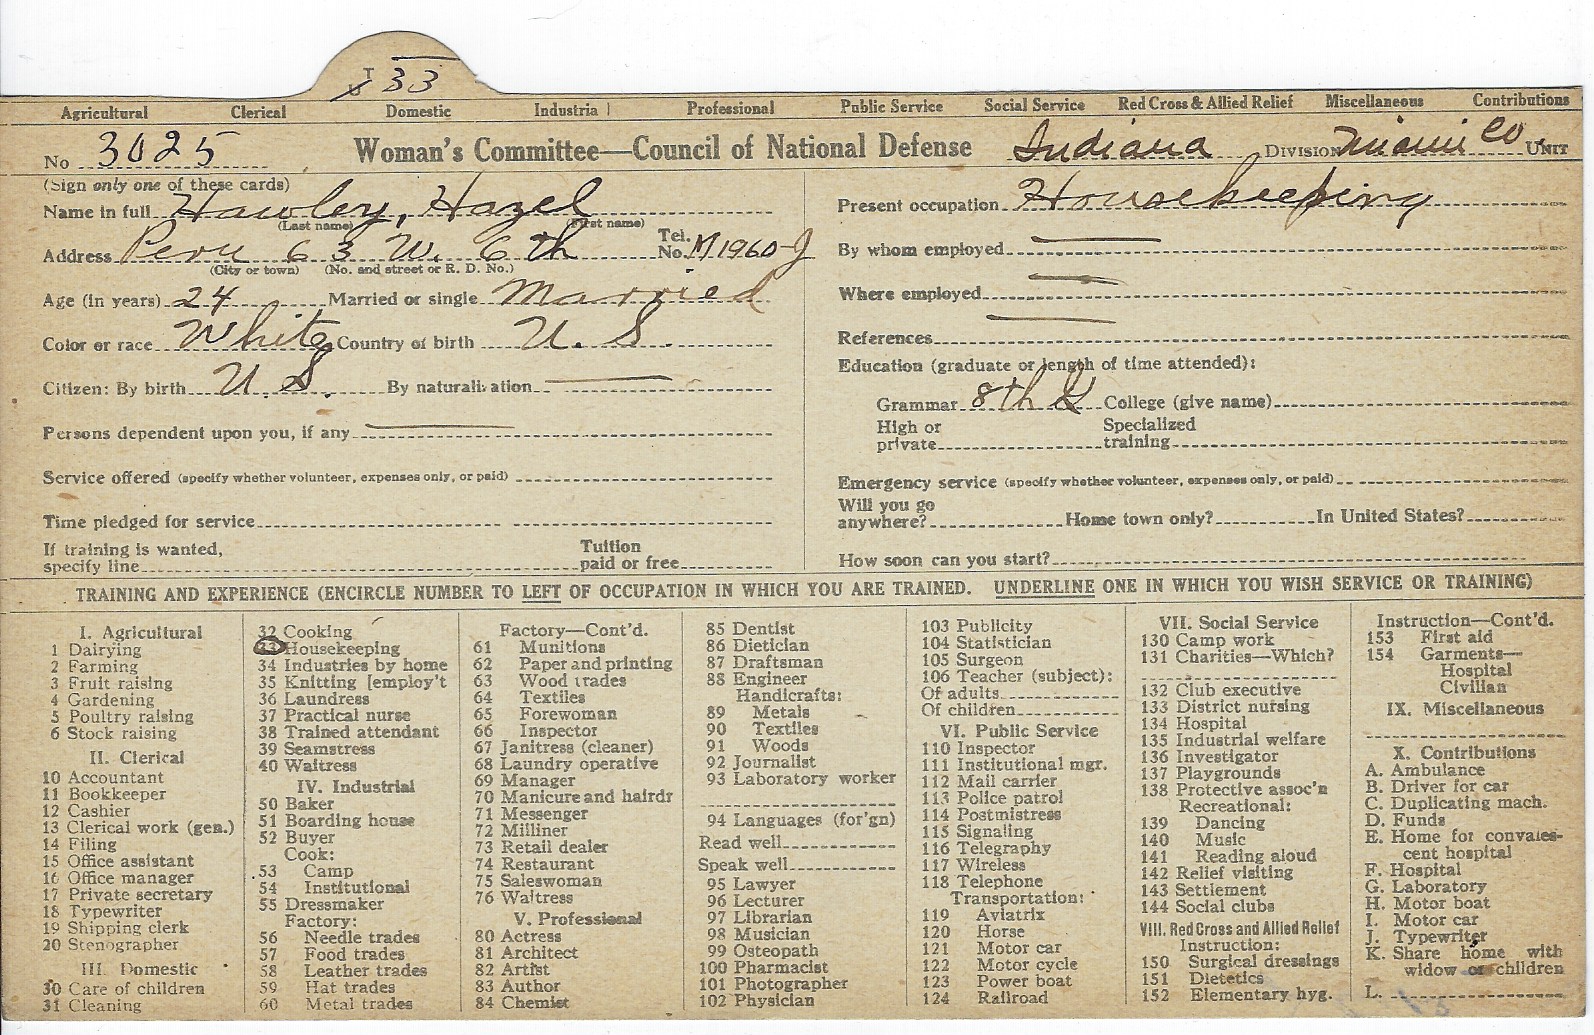 T 33
Agricultural Clerical Domestic Industrial Professional Public Service Social Service Red Cross & Allied Relief Miscellaneous Contributions
No 3025 Woman's Committee—Council of National Defense Indiana DIVISION Miami Co. UNIT
(Sign only one of these cards)
Name in full Hawley, Hazel
(Last name) (First name)
Address Peru 63 W. 6th Tel. No. M1960-J
(City or town) (No. and street or R. D. No.)
Age (in years) 24 Married or single Married
Color or race White Country of birth U. S.
Citizen: By birth U. S. By naturalization
Persons dependent upon you, if any
Service offered (specify whether volunteer, expenses only, or paid)
Time pledged for service
If training is wanted, specify line Tuition paid or free
Present occupation Housekeeping
By whom employed
Where employed
References
Education (graduate or length of time attended):
Grammar 8th G College (give name)
High or private Specialized training
Emergency service (specify whether volunteer, expenses only, or paid)
Will you go anywhere? Home town only? In United States?
How soon can you start?
TRAINING AND EXPERIENCE (ENCIRCLE NUMBER TO LEFT OF OCCUPATION IN WHICH YOU ARE TRAINED. UNDERLINE ONE IN WHICH YOU WISH SERVICE OR TRAINING)
I. Agricultural
1 Dairying
2 Farming
3 Fruit raising
4 Gardening
5 Poultry raising
6 Stock raising
II. Clerical
10 Accountant
11 Bookkeeper
12 Cashier
13 Clerical work (gen.)
14 Filing
15 Office assistant
16 Office manager
17 Private secretary
18 Typewriter
19 Shipping clerk
20 Stenographer
III. Domestic
30 Care of children
31 Cleaning
32 Cooking
33 Housekeeping
34 Industries by home
35 Knitting [employ't
36 Laundress
37 Practical nurse
38 Trained attendant
39 Seamstress
40 Waitress
IV. Industrial
50 Baker
51 Boarding house
52 Buyer
Cook:
53 Camp
54 Institutional
55 Dressmaker
Factory:
56 Needle trades
57 Food trades
58 Leather trades
59 Hat trades
60 Metal trades
Factory—Cont'd.
61 Munitions
62 Paper and printing
63 Wood trades
64 Textiles
65 Forewoman
66 Inspector
67 Janitress (cleaner)
68 Laundry operative
69 Manager
70 Manicure and hairdr
71 Messenger
72 Milliner
73 Retail dealer
74 Restaurant
75 Saleswoman
76 Waitress
V. Professional
80 Actress
81 Architect
82 Artist
83 Author
84 Chemist
85 Dentist
86 Dietician
87 Draftsman
88 Engineer
Handicrafts:
89 Metals
90 Textiles
91 Woods
92 Journalist
93 Laboratory worker
94 Languages (for'gn)
Read well
Speak well
95 Lawyer
96 Lecturer
97 Librarian
98 Musician
99 Osteopath
100 Pharmacist
101 Photographer
102 Physician
103 Publicity
104 Statistician
105 Surgeon
106 Teacher (subject):
Of adults
Of children
VI. Public Service
110 Inspector
111 Institutional mgr.
112 Mail carrier
113 Police patrol
114 Postmistress
115 Signaling
116 Telegraphy
117 Wireless
118 Telephone
Transportation:
119 Aviatrix
120 Horse
121 Motor car
122 Motor cycle
123 Power boat
124 Railroad
VII. Social Service
130 Camp work
131 Charities—Which?
132 Club executive
133 District nursing
134 Hospital
135 Industrial welfare
136 Investigator
137 Playgrounds
138 Protective assoc'n
Recreational:
139 Dancing
140 Music
141 Reading aloud
142 Relief visiting
143 Settlement
144 Social clubs
VIII. Red Cross and Allied Relief
Instruction:
150 Surgical dressings
151 Dietetics
152 Elementary hyg.
Instruction—Cont'd.
153 First aid
154 Garments—
Hospital
Civilian
IX. Miscellaneous
X. Contributions
A. Ambulance
B. Driver for car
C. Duplicating mach.
D. Funds
E. Home for convales-
cent hospital
F. Hospital
G. Laboratory
H. Motor boat
I. Motor car
J. Typewriter
K. Share home with
widow or children
L.